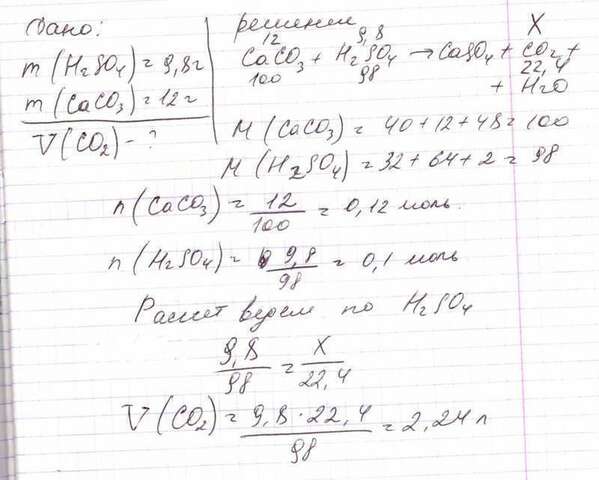 Дано:
m(H₂SO₄) = 9,8г
m(CaCO₃) = 12г
V(CO₂) - ?
решение
12 9,8 X
CaCO₃ + H₂SO₄ → CaSO₄ + CO₂ +
100 98 22,4
+ H₂O
M(CaCO₃) = 40+12+48 = 100
M(H₂SO₄) = 32+64+2 = 98
n(CaCO₃) = 12/100 = 0,12 моль.
n(H₂SO₄) = 9,8/98 = 0,1 моль
Расчет ведем по H₂SO₄
9,8/98 = X/22,4
V(CO₂) = 9,8·22,4/98 = 2,24 л